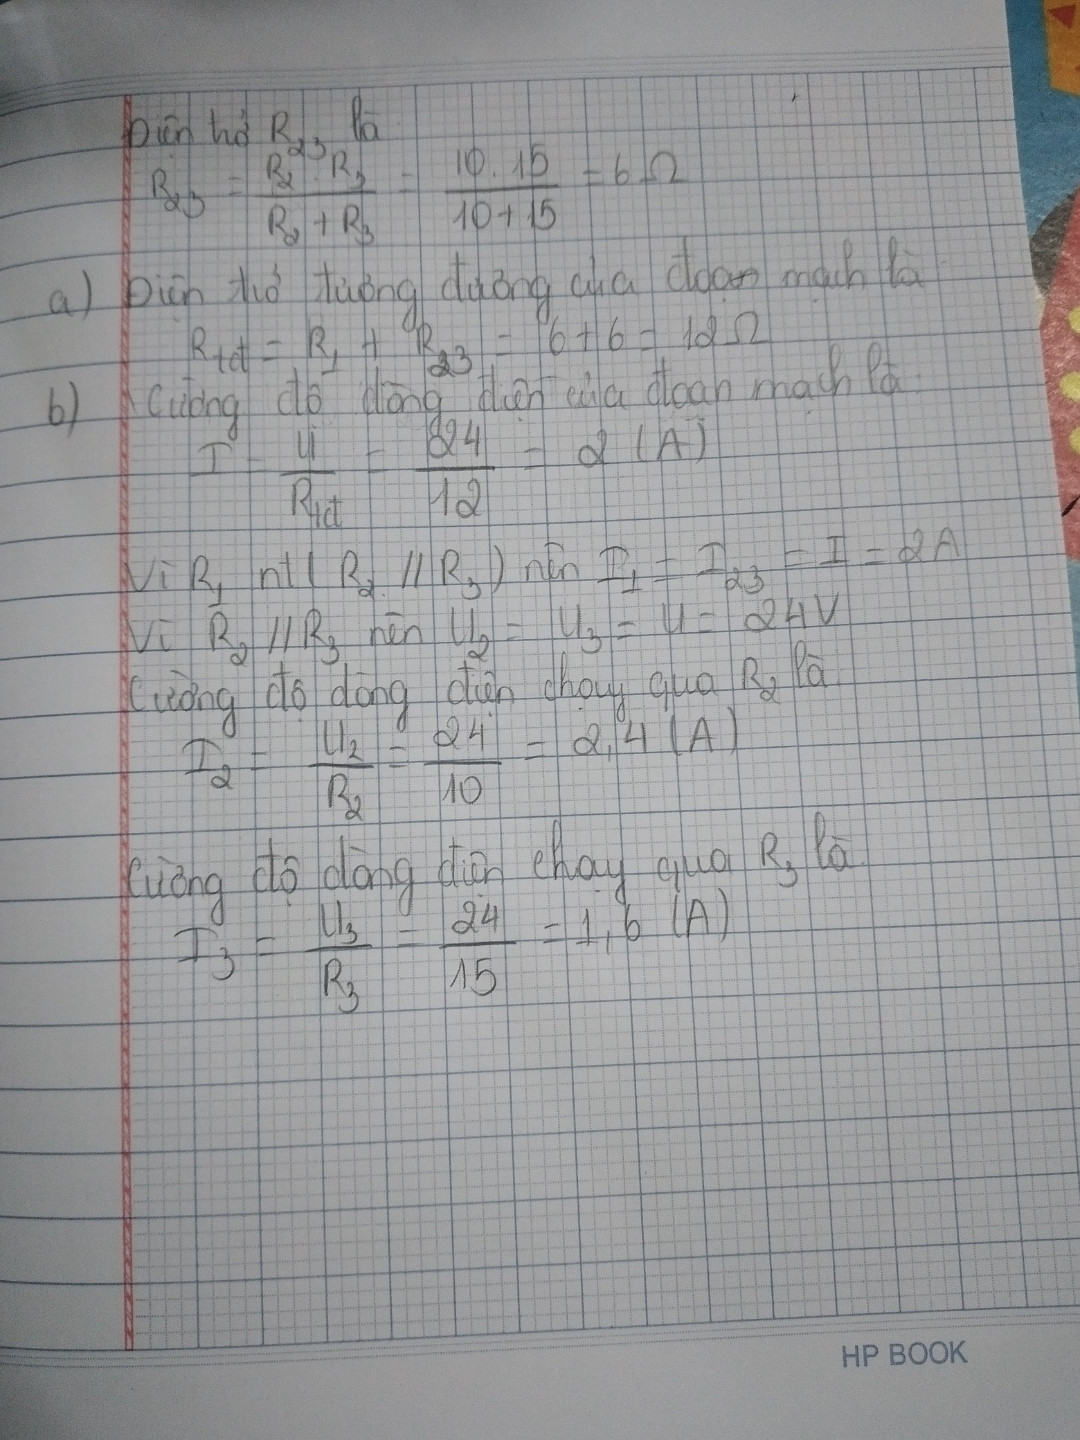 Điện trở R₂₃ là
R₂₃ = R₂ . R₃ / R₂ + R₃ = 10 . 15 / 10 + 15 = 6 Ω
a) Điện trở tương đương của đoạn mạch là
Rtđ = R₁ + R₂₃ = 6 + 6 = 12 Ω
b) Cường độ dòng điện của đoạn mạch là
I = U / Rtđ = 24 / 12 = 2 (A)
Vì R₁ nt ( R₂ // R₃ ) nên I₁ = I₂₃ = I = 2A
Vì R₂ // R₃ nên U₂ = U₃ = U = 24V
Cường độ dòng điện chạy qua R₂ là
I₂ = U₂ / R₂ = 24 / 10 = 2,4 (A)
Cường độ dòng điện chạy qua R₃ là
I₃ = U₃ / R₃ = 24 / 15 = 1,6 (A)
HP BOOK